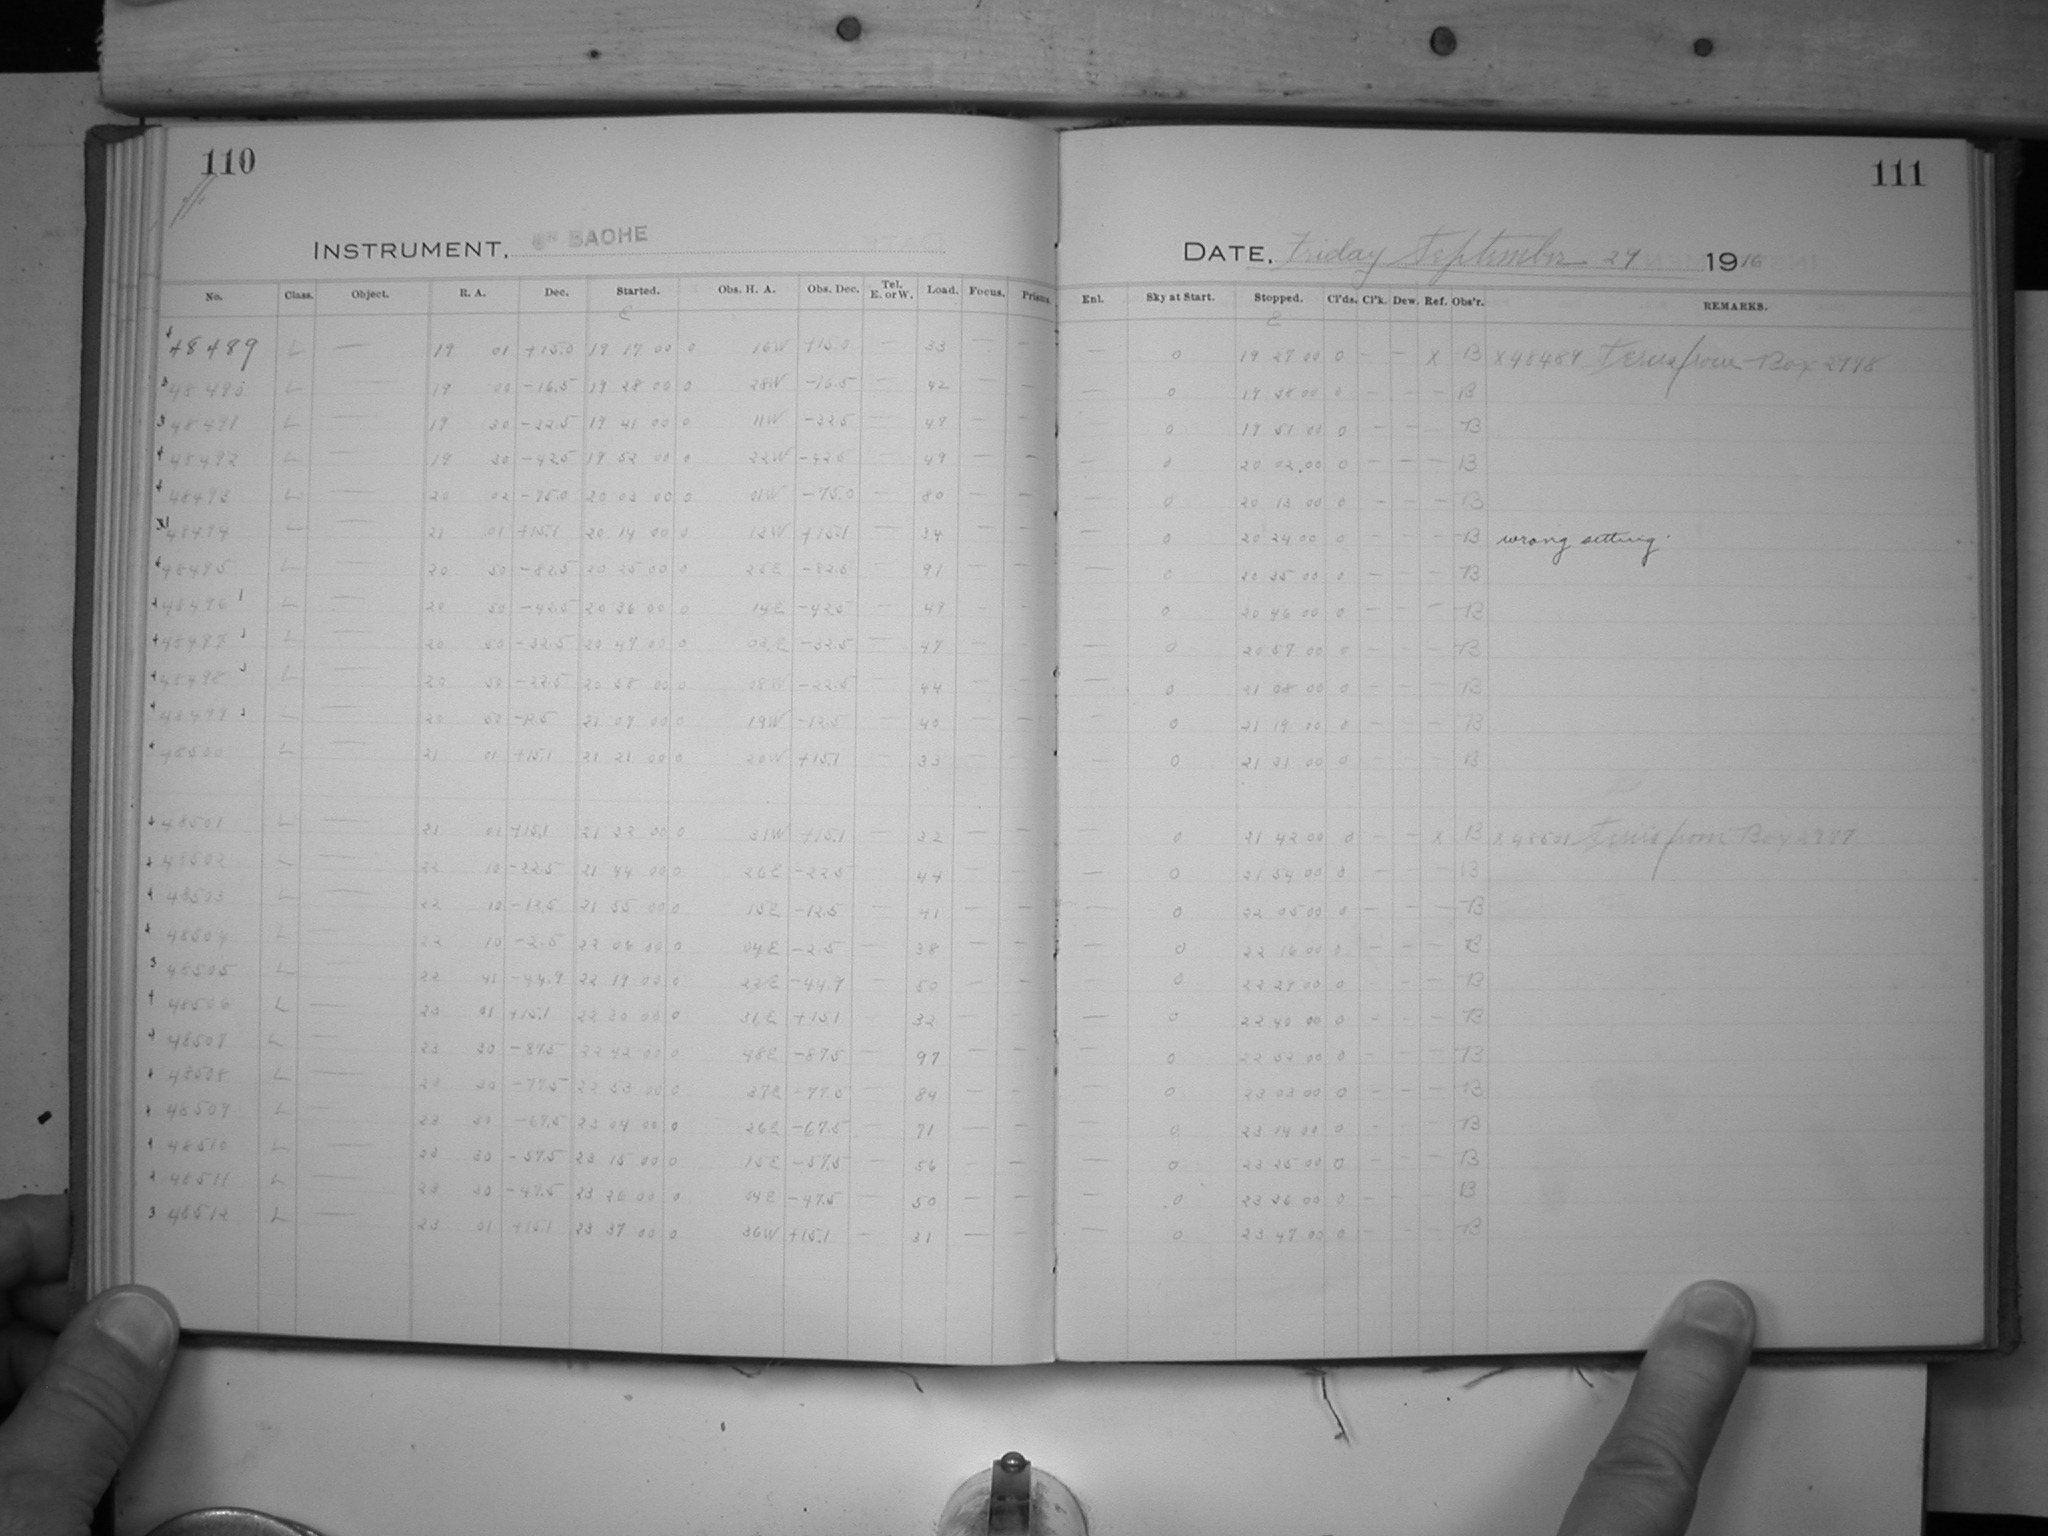 110
111
INSTRUMENT,
DATE, Friday September 29 1916
No. Class. Object. R. A. Dec. Started. Obs. H. A. Obs. Dec. Tel. E. or W. Load. Focus. Prisms. Enl. Sky at Start. Stopped. Cl'ds. Cl'k. Dew. Ref. Obs'r. REMARKS.
E E
48489 L — 19 01 +15.0 19 17 00 0 16W +15.0 — 33 — — — 0 19 27 00 0 — — X B X 48489 from Box 2998
L — 19 00 -16.5 19 28 00 0 28W -16.5 — 42 — — — 0 19 38 00 0 — — — B
48491 L — 19 30 -32.5 19 41 00 0 11W -32.5 — 47 — — — 0 19 51 00 0 — — — B
48492 L — 19 30 -42.5 19 52 00 0 22W -42.5 — 49 — — — 0 20 02 00 0 — — — B
48493 L — 20 02 -75.0 20 03 00 0 01W -75.0 — 80 — — — 0 20 13 00 0 — — — B
48494 L — 21 01 +15.1 20 14 00 0 +15.1 — 34 — — — 0 20 24 00 0 — — — B wrong setting.
48495 L — 20 50 -82.5 20 25 00 0 25E -82.5 — 91 — — — 0 20 35 00 0 — — — B
48496 L — 20 50 -42.5 20 36 00 0 14E -42.5 — 49 — — — 0 20 46 00 0 — — — B
48497 L — 20 50 -32.5 20 47 00 0 03E -32.5 — 47 — — — 0 20 57 00 0 — — — B
48498 L — 20 50 -22.5 20 58 00 0 08W -22.5 — 44 — — — 0 21 08 00 0 — — — B
48499 L — 20 50 -12.5 21 09 00 0 19W -12.5 — 40 — — — 0 21 19 00 0 — — — B
48500 L — 21 01 +15.1 21 21 00 0 20W +15.1 — 33 — — — 0 21 31 00 0 — — — B
48501 L — 21 01 +15.1 21 32 00 0 31W +15.1 — 32 — — — 0 21 42 00 0 — — X B X 48501 from Box 2977
48502 L — 22 10 -22.5 21 44 00 0 26E -22.5 — 44 — — — 0 21 54 00 0 — — — B
48503 L — 22 10 -12.5 21 55 00 0 15E -12.5 — 41 — — — 0 22 05 00 0 — — — B
48504 L — 22 10 -2.5 22 06 00 0 04E -2.5 — 38 — — — 0 22 16 00 0 — — — B
48505 L — 22 41 -44.9 22 19 00 0 22E -44.9 — 50 — — — 0 22 29 00 0 — — — B
48506 L — 23 01 +15.1 22 30 00 0 31E +15.1 — 32 — — — 0 22 40 00 0 — — — B
48507 L — 23 30 -87.5 22 42 00 0 48E -87.5 — 97 — — — 0 22 52 00 0 — — — B
48508 L — 23 30 -77.5 22 53 00 0 37E -77.5 — 84 — — — 0 23 03 00 0 — — — B
48509 L — 23 30 -67.5 23 04 00 0 26E -67.5 — 71 — — — 0 23 14 00 0 — — — B
48510 L — 23 30 -57.5 23 15 00 0 15E -57.5 — 56 — — — 0 23 25 00 0 — — — B
48511 L — 23 30 -47.5 23 26 00 0 04E -47.5 — 50 — — — 0 23 36 00 0 — — — B
48512 L — 23 01 +15.1 23 37 00 0 36W +15.1 — 31 — — — 0 23 47 00 0 — — — B